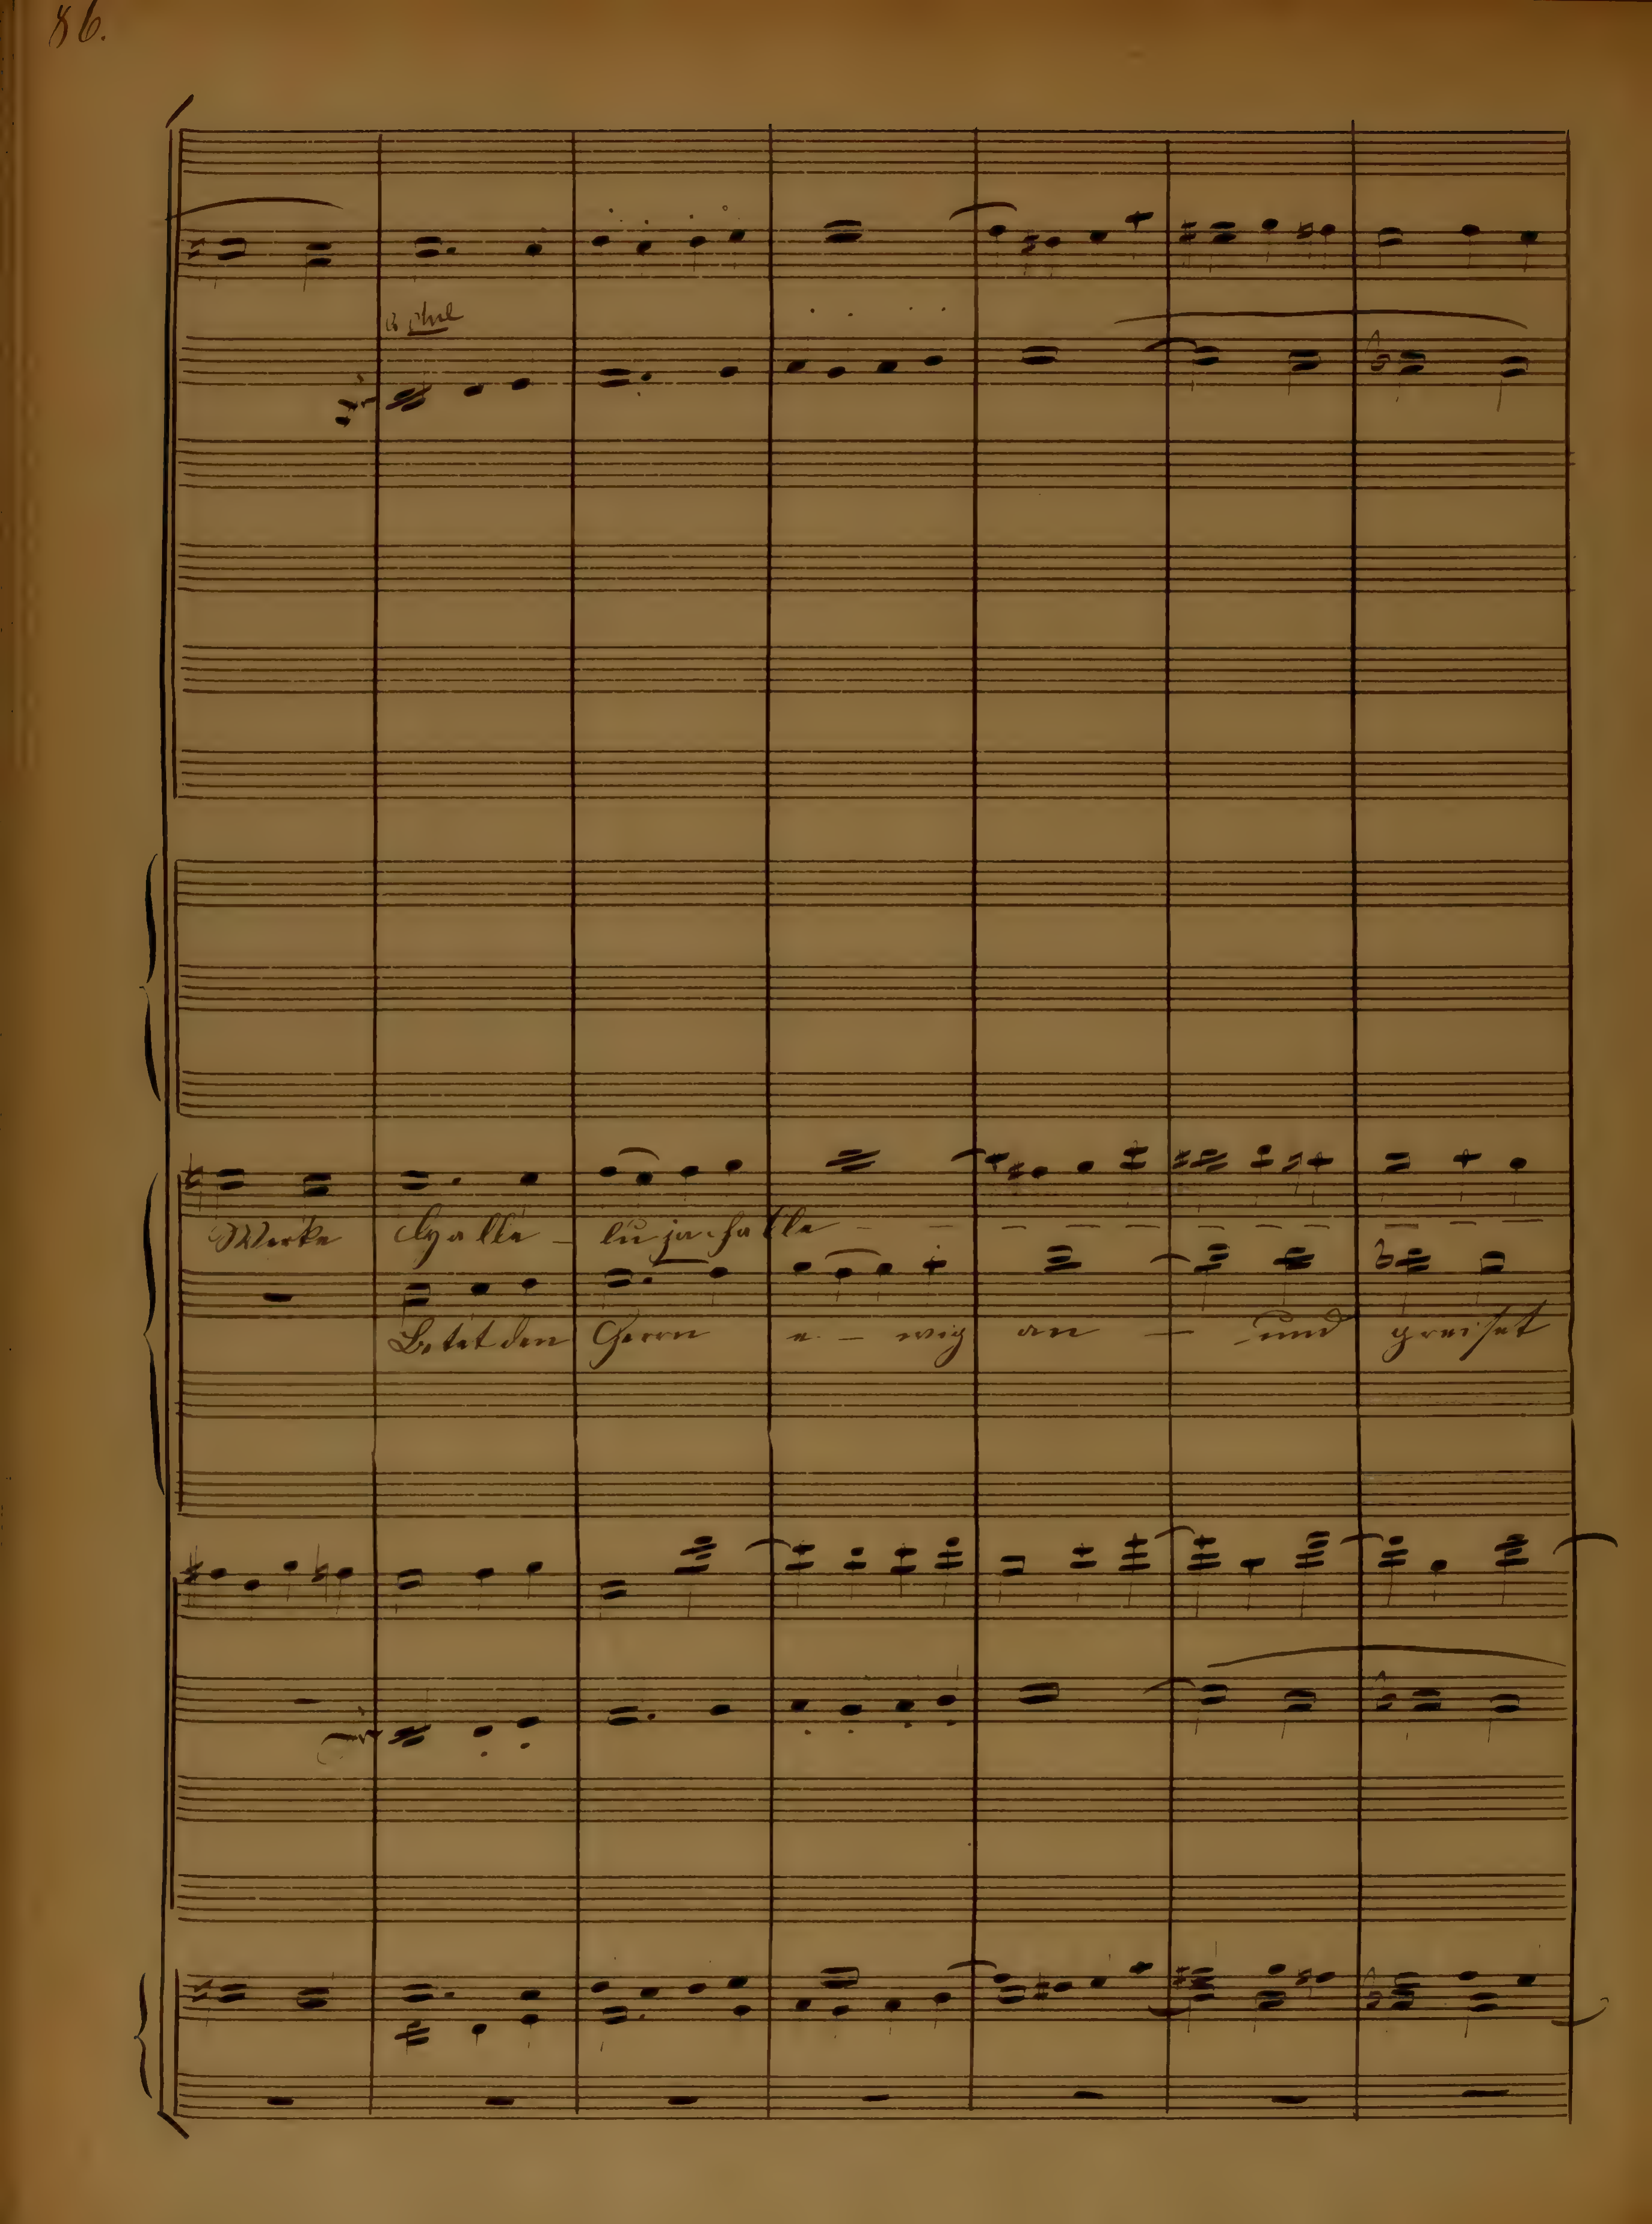 86.
Werke Halle - lu ja. halle - - - - - - - - - - - -
Betet den Herrn e - wig an - und preiset